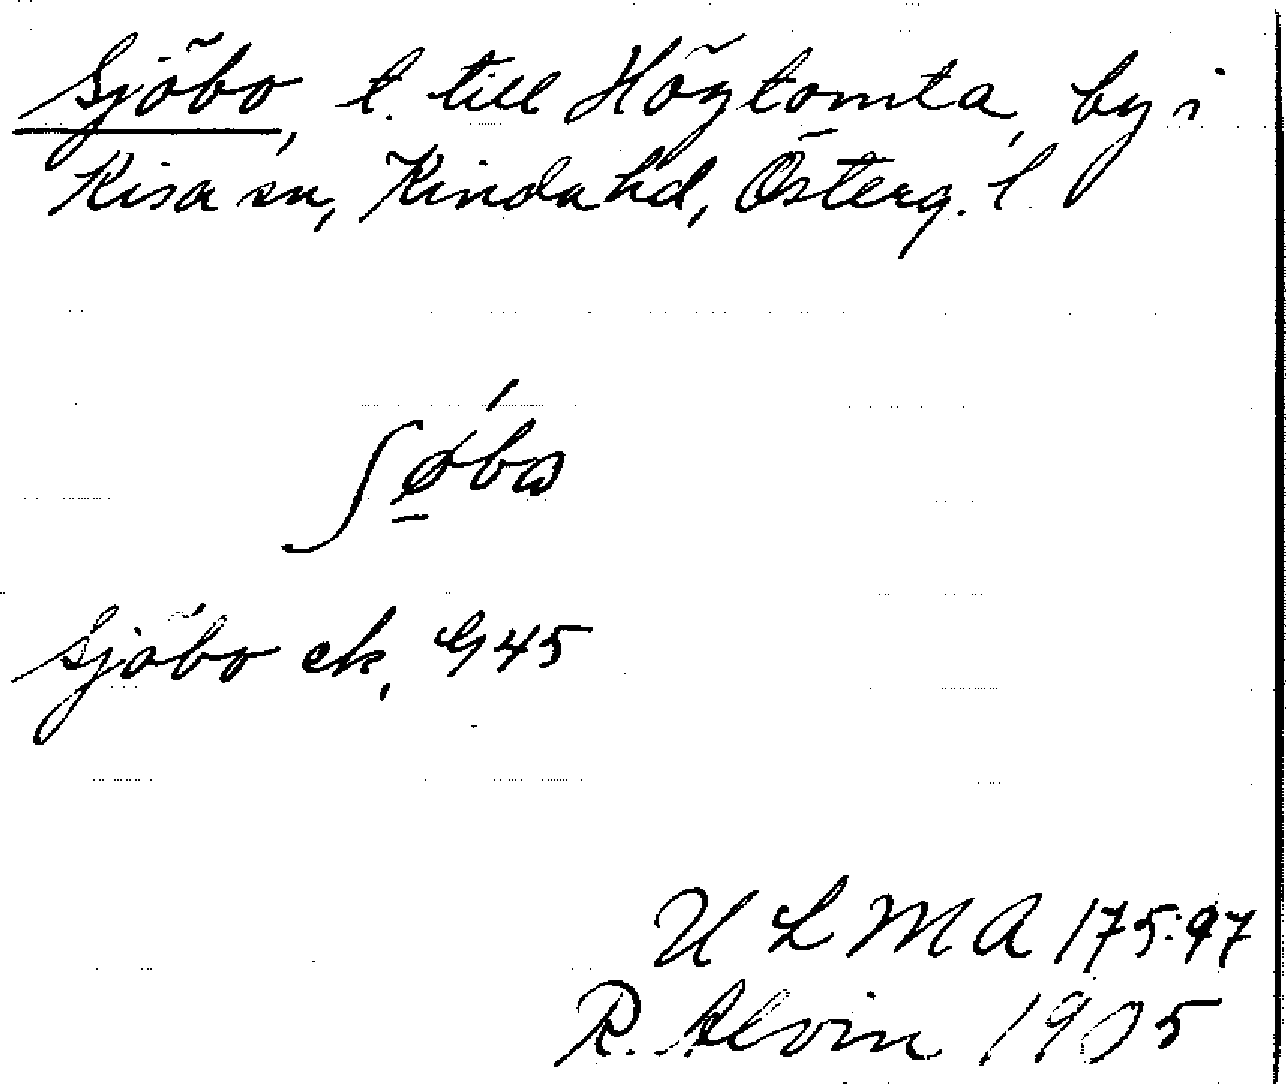 Sjöbo, t. till Högtomta, by i
Kisa sn, Kinda hd, Österg. l.
ʃǿ̠bɷ
Sjöbo ek, G45
ULMA 175:97
R. Alvin 1905